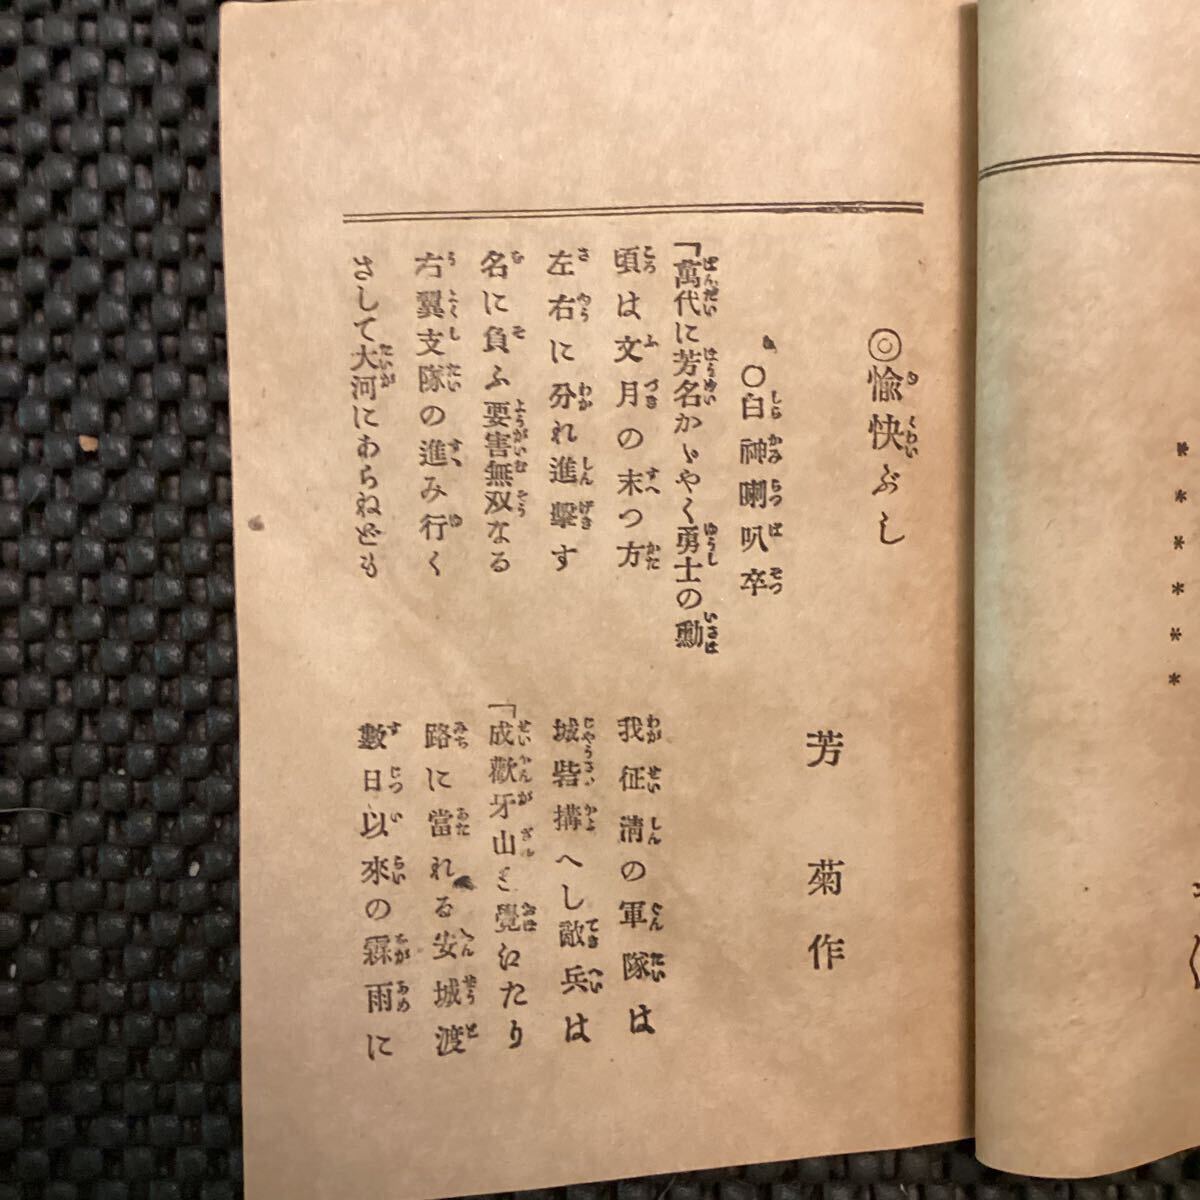 ◎愉快ぶし
芳菊作
○白神喇叭卒
「萬代に芳名かゝやく勇士の勳
頃は文月の末つ方
我征清の軍隊は
左右に分れ進擊す
城砦搆へし敵兵は
名に負ふ要害無双なる
「成歡牙山と覺えたり
右翼支隊の進み行く
路に當れる安城渡
さして大河にあらねども
數日以來の霖雨に